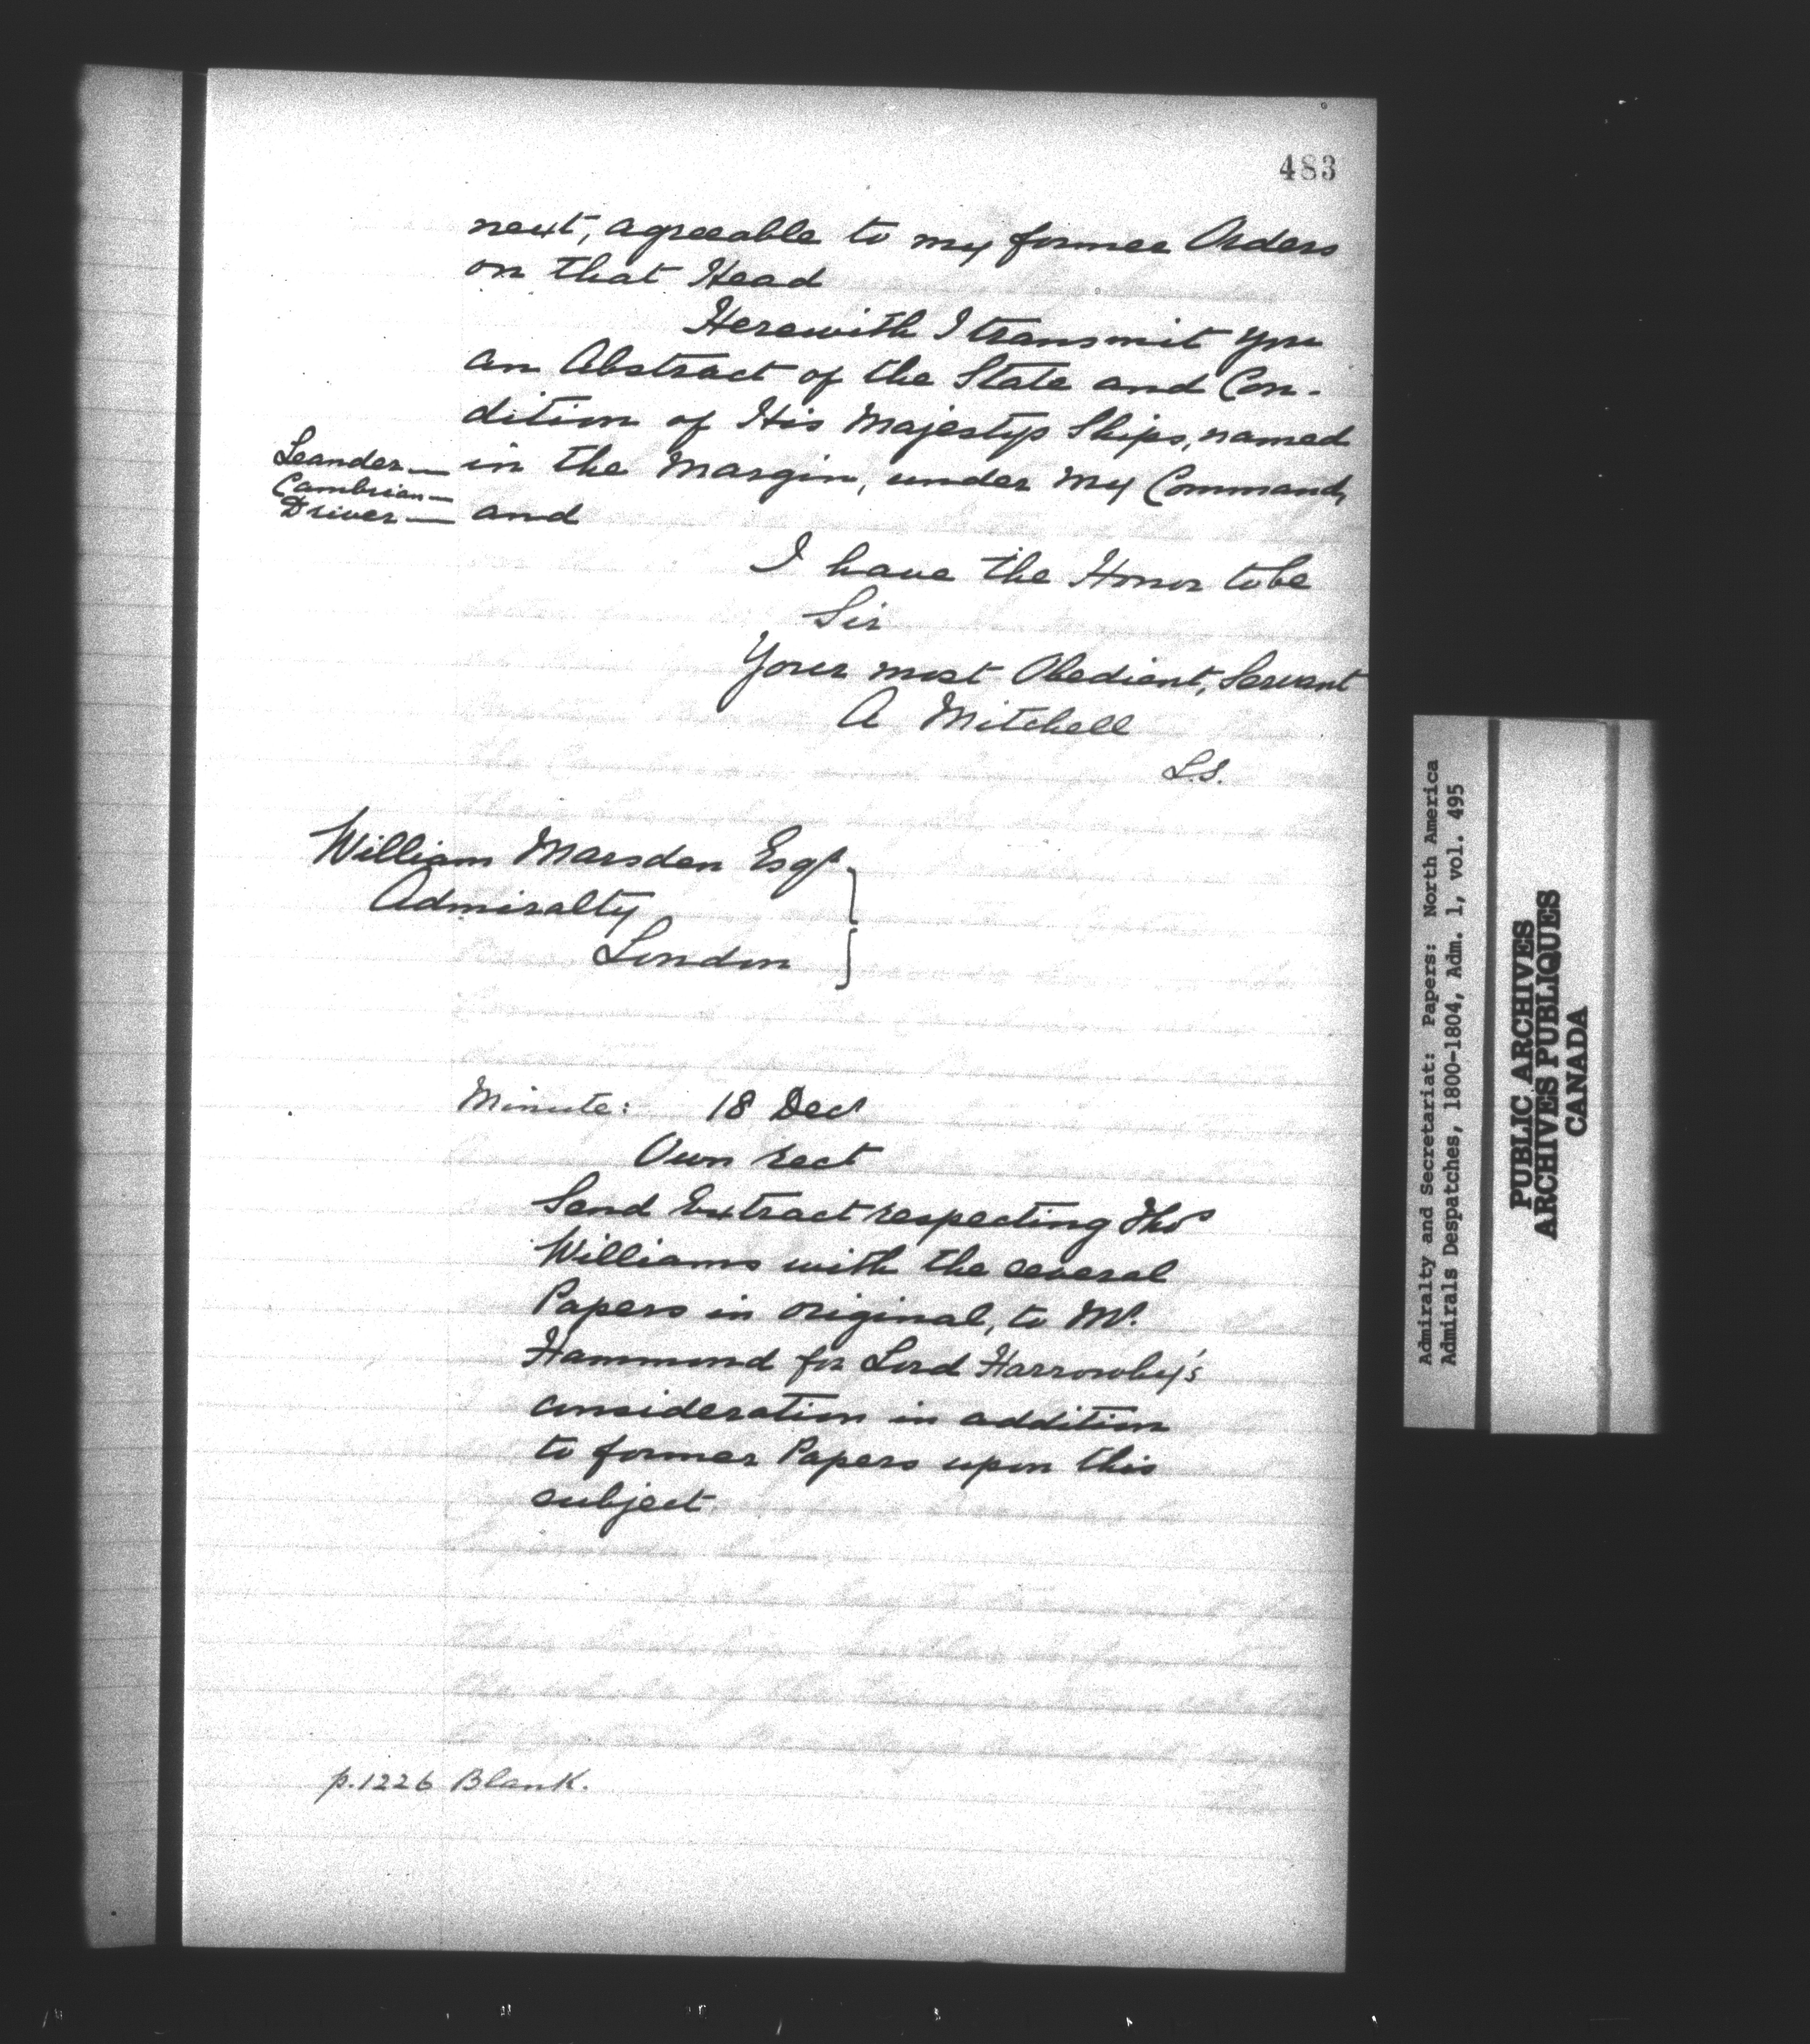 483
next, agreeable to my former Orders
on that Head
Herewith I transmit you
an Abstract of the State and Con-
dition of His Majestys Ships, named
Leander — in the Margin, under my Command,
Cambrian —
Driver — and
I have the Honor to be
Sir
Your most Obedient, Servant
A Mitchell
L.S.
William Marsden Esqr
Admiralty
London
Minute: 18 Decr
Own rect
Send Extract respecting Thos
Williams with the several
Papers in original, to Mr.
Hammond for Lord Harrowby's
consideration in addition
to former Papers upon this
subject.
p.1226 Blank.
Admiralty and Secretariat: Papers: North America
Admirals Despatches, 1800-1804, Adm. 1, vol. 495
PUBLIC ARCHIVES
ARCHIVES PUBLIQUES
CANADA